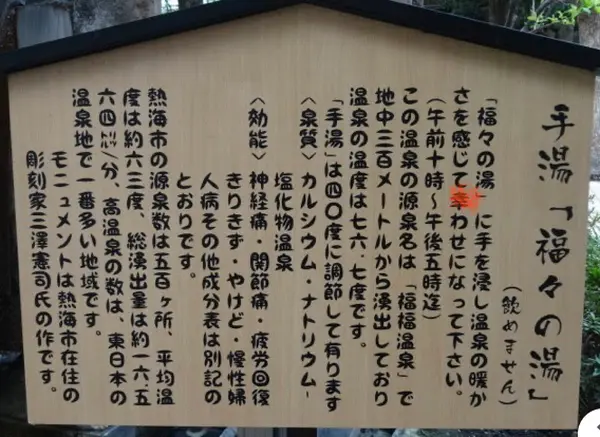 手湯「福々の湯」
(飲めません)
「福々の湯」に手を浸し温泉の暖か
さを感じて幸わせになって下さい。
(午前十時〜午後五時迄)
この温泉の源泉名は「福福温泉」で
地中三百メートルから湧出しており
温泉の温度は七六.七度です。
「手湯」は四〇度に調節して有ります
〈泉質〉カルシウム・ナトリウム-
塩化物温泉
〈効能〉神経痛・関節痛・疲労回復
きりきず・やけど・慢性婦
人病その他成分表は別記の
とおりです。
熱海市の源泉数は五百ヶ所、平均温
度は約六三度、総湧出量は約一六、五
六四㍑/分、高温泉の数は、東日本の
温泉地で一番多い地域です。
モニュメントは熱海市在住の
彫刻家三澤憲司氏の作です。